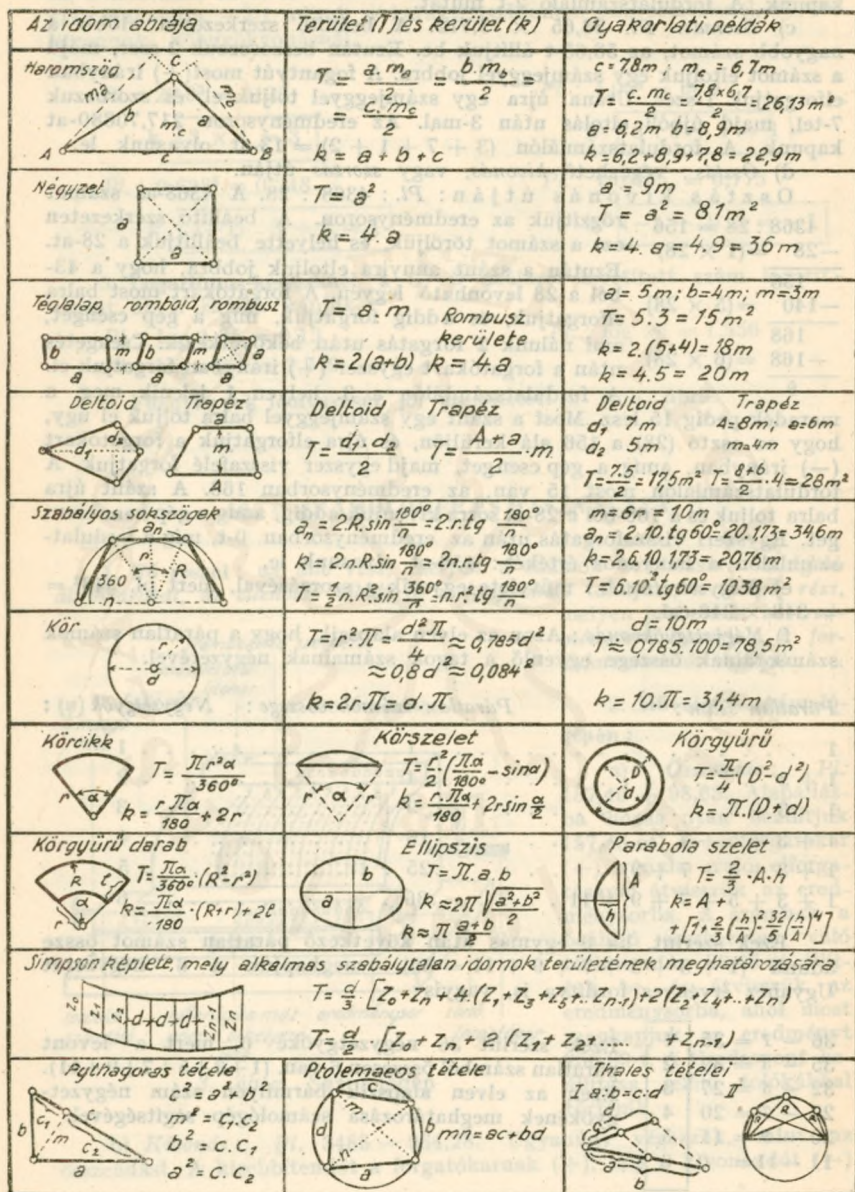 Az idom ábrája
Terület (T) és kerület (k)
Gyakorlati példák
Háromszög
C
ma
b
a
mc
A
c
B
T = a.ma/2 = b.mb/2 =
= c.mc/2
k = a + b + c
c = 7,8m ; mc = 6,7m
T = c.mc/2 = 7,8×6,7/2 = 26,13 m²
a = 6,2m b = 8,9m
k = 6,2+8,9+7,8 = 22,9m
Négyzet
a
a
T = a²
k = 4.a
a = 9m
T = a² = 81m²
k = 4.a = 4.9 = 36m
Téglalap, romboid, rombusz
b m b m a
a a a
T = a.m
Rombusz
kerülete
k = 2(a+b) k = 4.a
a = 5m; b = 4m; m = 3m
T = 5.3 = 15m²
k = 2.(5+4) = 18m
k = 4.5 = 20m
Deltoid Trapéz
d1 d2
a
m
A
Deltoid Trapéz
T = d1.d2/2 T = A+a/2 .m
Deltoid Trapéz
d1 7m A=8m; a=6m
d2 5m m=4m
T = 7.5/2 = 17,5m² T = 8+6/2 .4 = 28m²
Szabályos sokszögek
an
r
R
360
n
an = 2R.sin 180°/n = 2.r.tg 180°/n
k = 2n.R.sin 180°/n = 2n.r.tg 180°/n
T = 1/2 n.R².sin 360°/n = n.r².tg 180°/n
m = 6 r = 10m
an = 2.10.tg60° = 20.1,73 = 34,6m
k = 2.6.10.1,73 = 20,76m
T = 6.10².tg60° = 1038m²
Kör
r
d
T = r².Π = d².Π/4 ≈ 0,785d²
≈ 0,8d² ≈ 0,084²
k = 2r.Π = d.Π
d = 10m
T ≈ 0,785.100 = 78,5m²
k = 10.Π = 31,4m
Körcikk
r
α
T = Πr²α/360°
k = r.Πα/180 + 2r
Körszelet
r
α
r
T = r²/2 .(Πα/180° - sinα)
k = r.Πα/180 + 2r sin α/2
Körgyűrű
D
d
T = π/4 .(D²-d²)
k = Π.(D+d)
Körgyűrű darab
R
α
r
T = Πα/360° .(R²-r²)
k = Πα/180 .(R+r)+2ℓ
Ellipszis
b
a
T = Π.a.b
k ≈ 2Π √a²+b²/2
k ≈ π a+b/2
Parabola szelet
A
h
T = 2/3 .A.h
k = A +
+[1+ 2/3 (h/A)² - 32/5 (h/A)⁴]
Simpson képlete, mely alkalmas szabálytalan idomok területének meghatározására
Z0 Z1 Z2 d d d Zn-1 Zn
T = d/3 .[Z0+Zn+4.(Z1+Z3+Z5+..Zn-1)+2(Z2+Z4+..+Zn)
T = d/2 .[Z0+Zn+2 (Z1+Z2+.... +Zn-1)
Pythagoras tétele
c1
c
b
m
c2
a
c² = a² + b²
m² = c1.c2
b² = c.c1
a² = c.c2
Ptolemaeos tétele
c
m
d
b
n
a
mn = ac+bd
Thales tételei
I a:b = c:d II
d
c
a
b
R